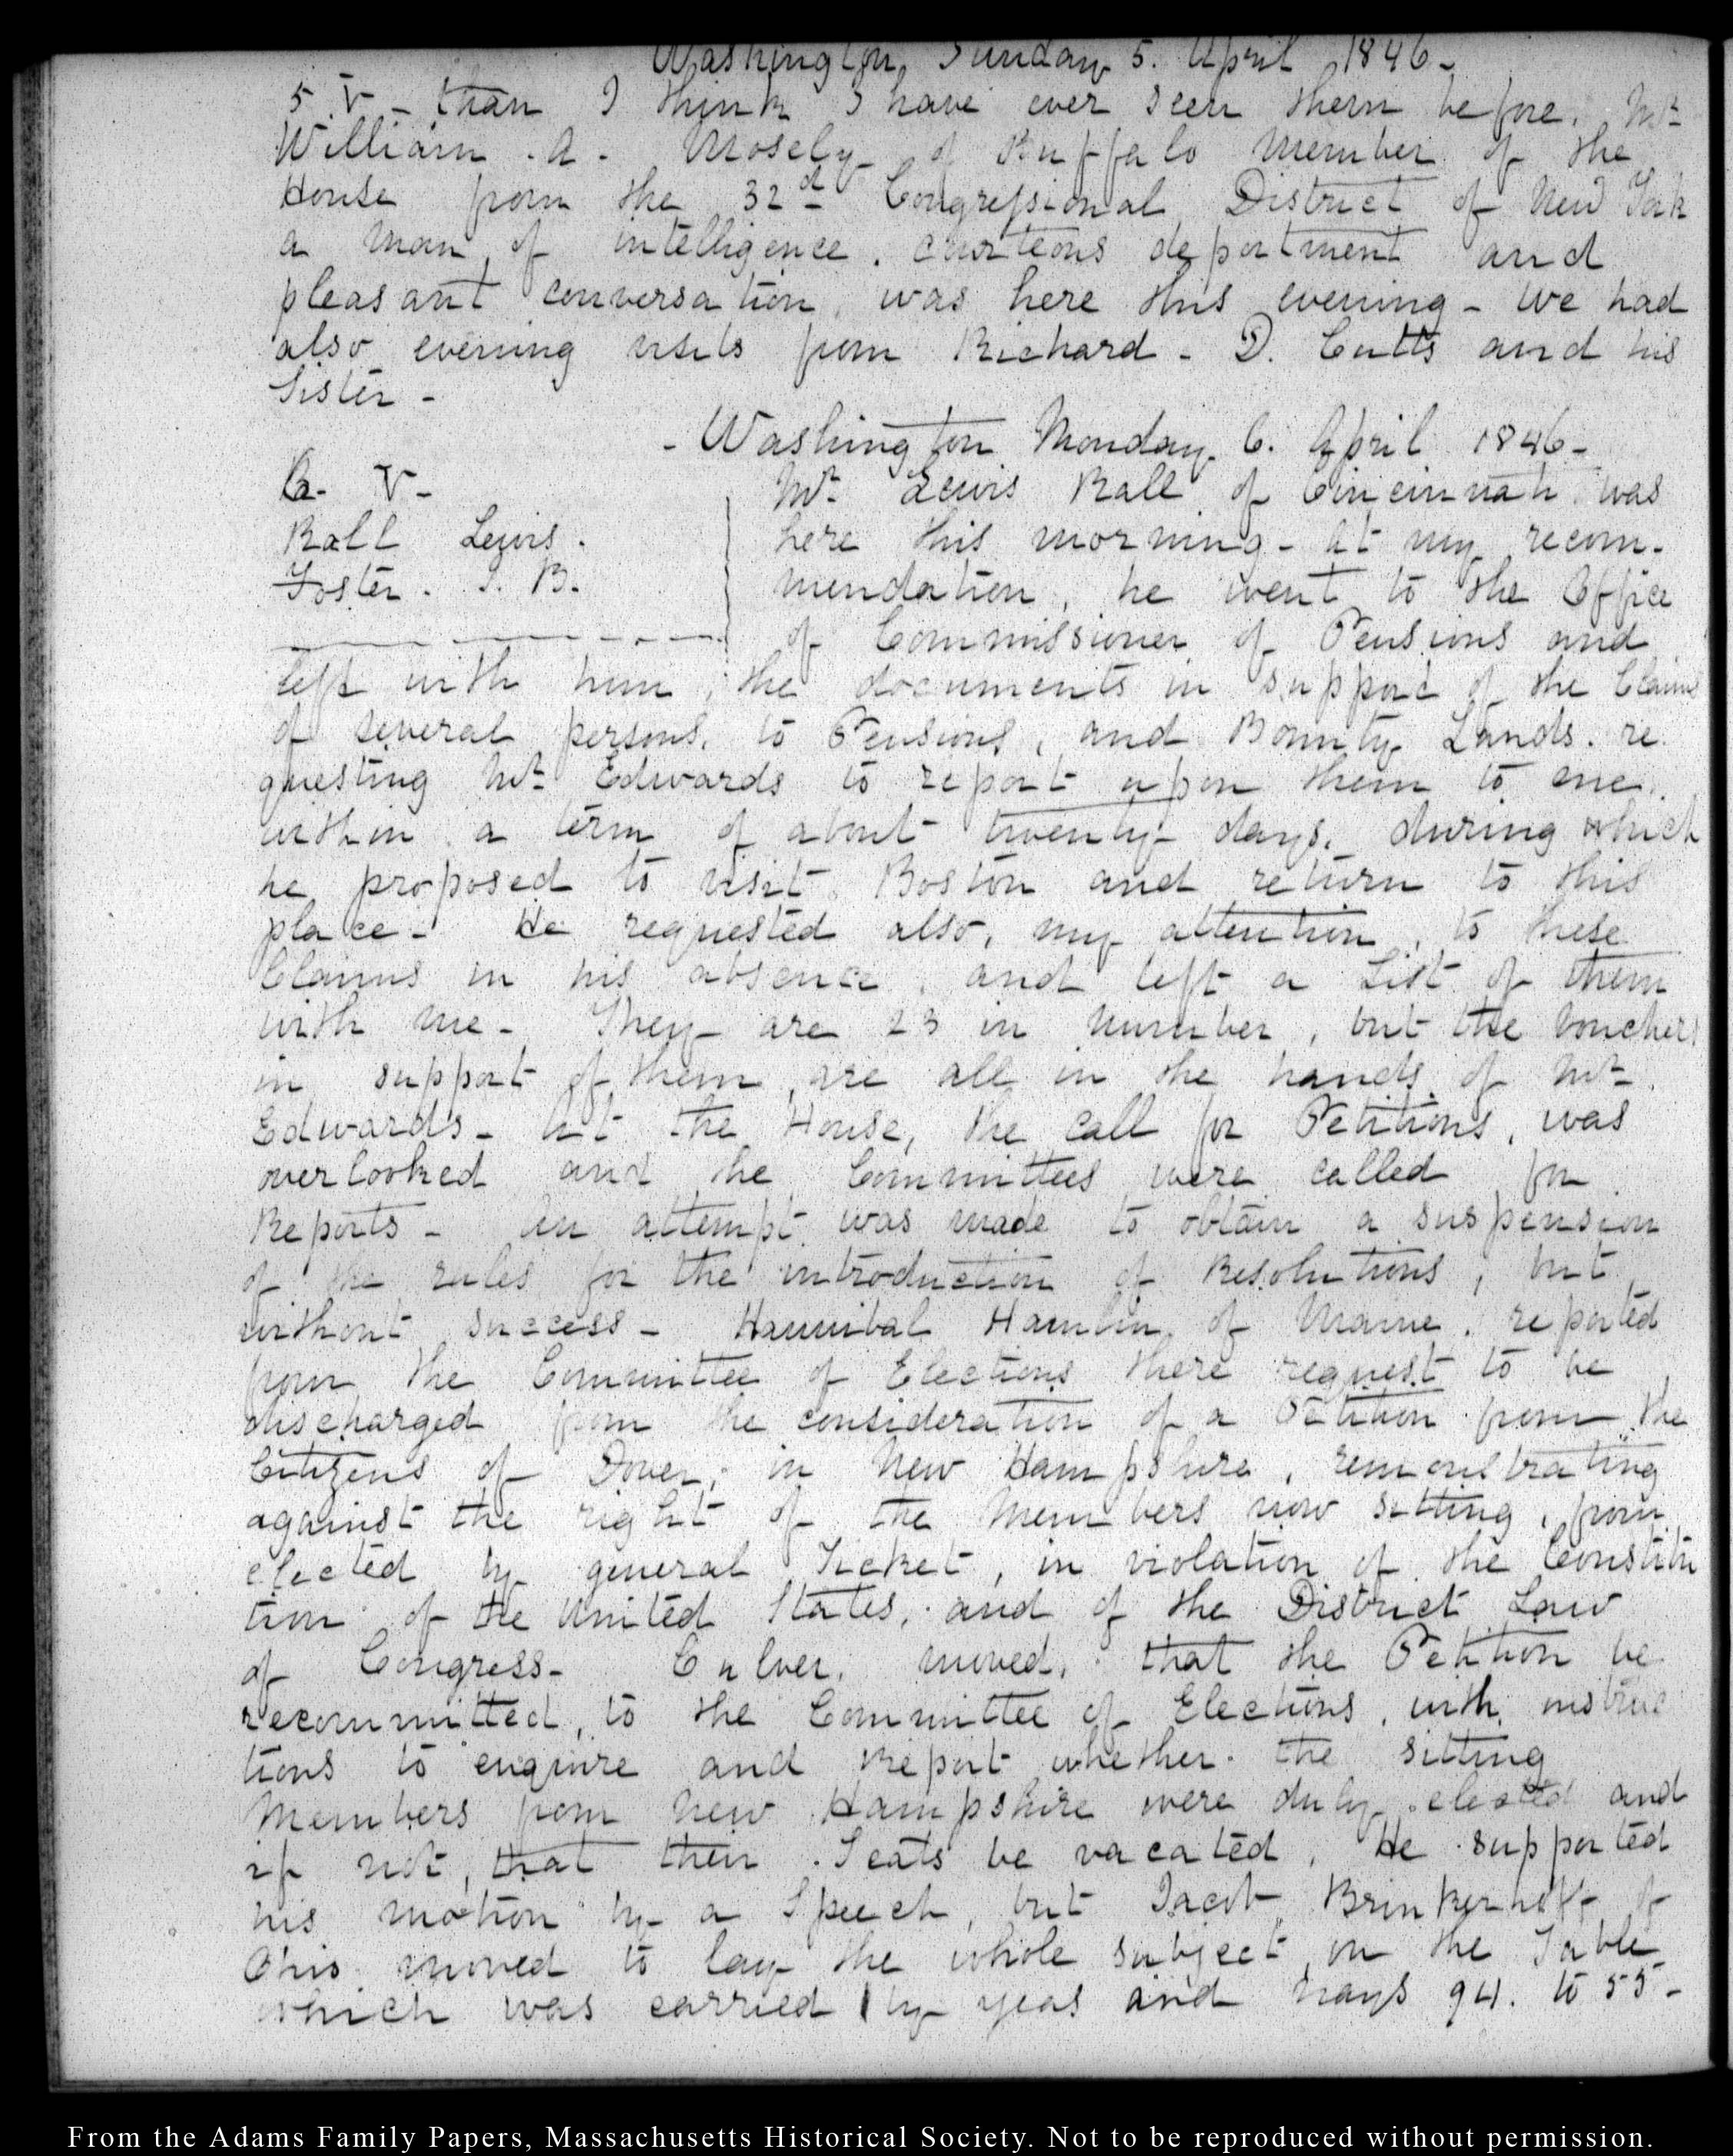 Washington, Sunday 5. April 1846-
5. V - than I think I have ever seen them before. Mr
William. A. Mosely of Buffalo Member of the
House from the 32d Congressional District of New York
a man of intelligence. courteous deportment and
pleasant conversation, was here this evening - We had
also evening visits from Richard - D. Cutts and his
Sister -
- Washington Monday 6. April 1846-
6. V-
Mr Lewis Ball of Cincinnati was
Ball Lewis.
here this morning - at my recom-
Foster. J. B.
mendation, he went to the Office
of Commissioner of Pensions and
left with him, the documents in support of the Claims
of several persons, to Pensions, and Bounty Lands. re
questing Mr Edwards to report upon them to me
within a term of about twenty days, during which
he proposed to visit Boston and return to this
place - He requested also, my attention, to these
Claims in his absence, and left a List of them
with me - They are 23 in number, but the Vouchers
in support of them, are all in the hands of Mr
Edwards - At the House, the call for Petitions, was
overlooked and the Committees were called for
Reports - An attempt was made to obtain a suspension
of the rules for the introduction of Resolutions, but
without success - Hannibal Hamlin of Maine, reported
from the Committee of Elections there request to be
discharged from the consideration of a Petition from the
Citizens of Dover, in New Hampshire, remonstrating
against the right of the Members now sitting, from
elected by general Ticket, in violation of the Constitu
tion of the United States, and of the District Law
of Congress - Culver, moved, that the Petition be
recommitted, to the Committee of Elections, with instruc
tions to enquire and Report whether the sitting
Members from New Hampshire were duly elected and
if not, that their Seats be vacated. He supported
his motion by a Speech, but Jacob Brinkerhoff of
Ohio moved to lay the whole subject on the Table
which was carried by yeas and nays 94. to 55-
From the Adams Family Papers, Massachusetts Historical Society. Not to be reproduced without permission.